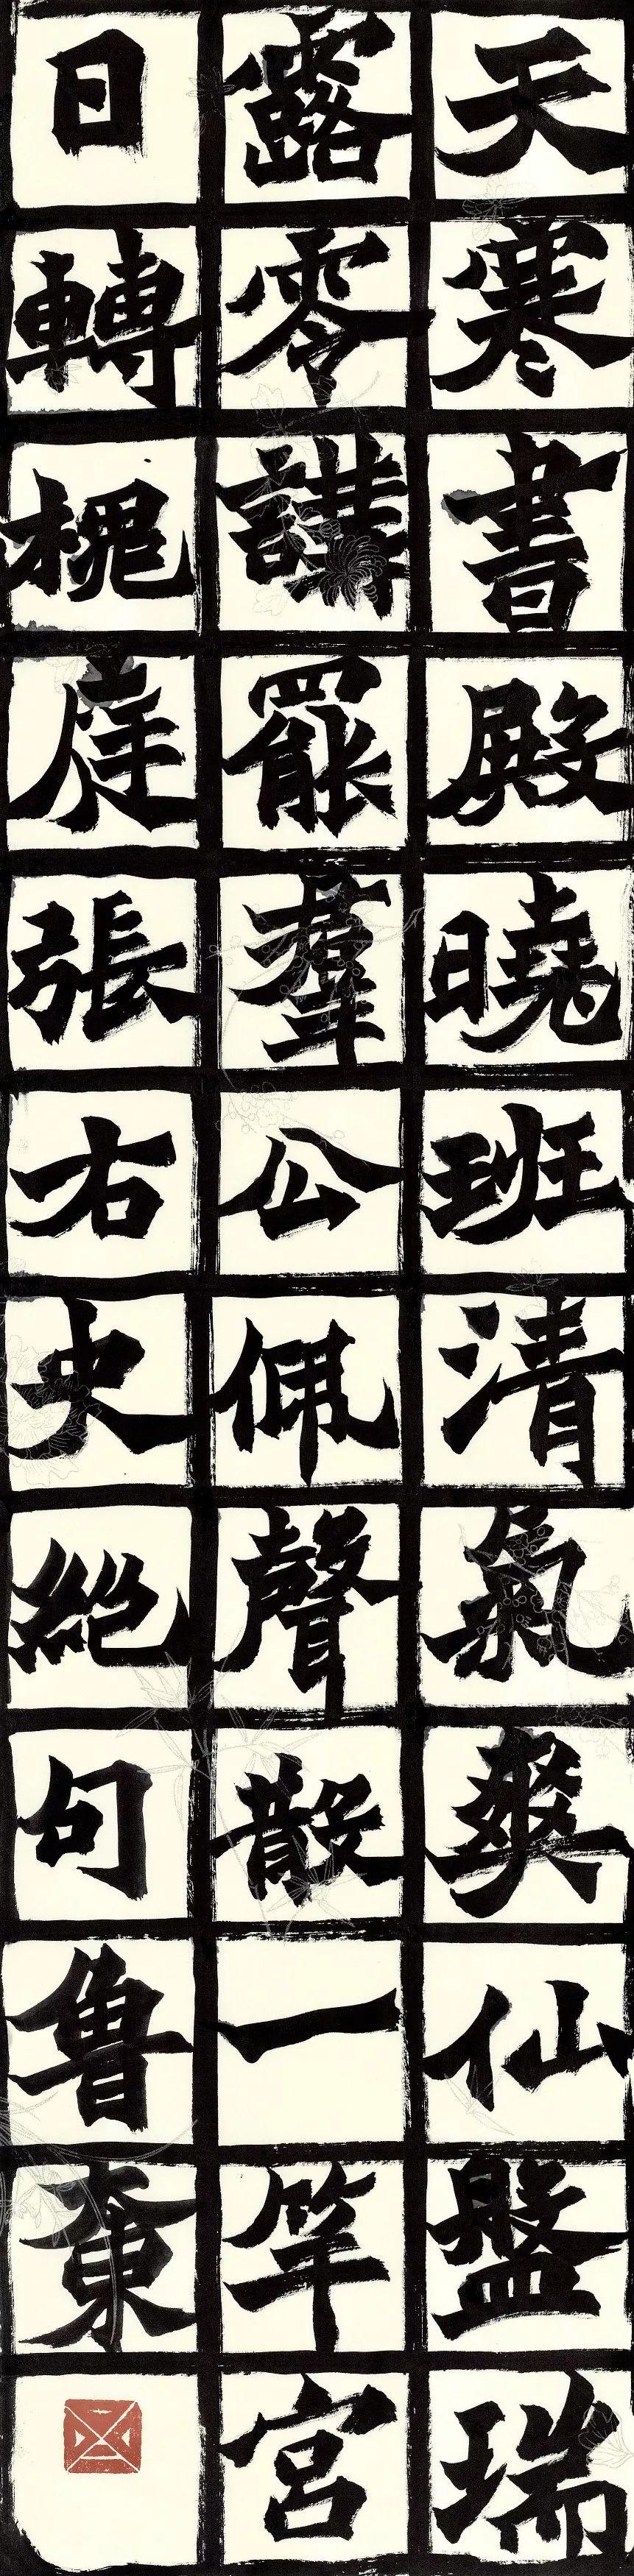 天寒書殿曉班清氣爽仙盤瑞
露零講罷羣公佩聲散一竿宮
日轉槐庭張右史絕句魯